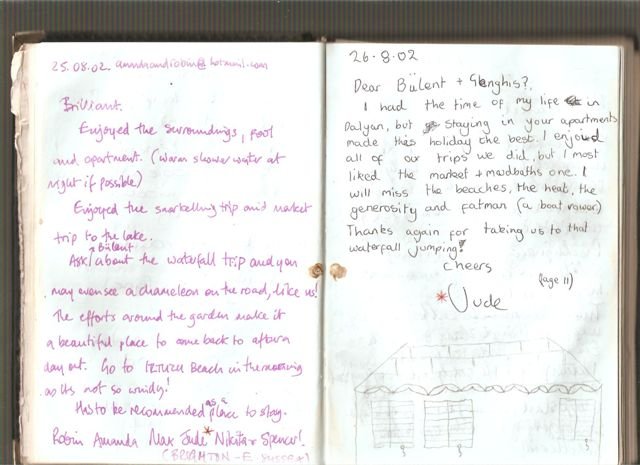 25.08.02. amandaandrobin@hotmail.com
Brilliant.
Enjoyed the surroundings, pool
and apartment. (warm shower water at
night if possible)
Enjoyed the snorkelling trip and market
trip to the lake.
Ask Bülent about the waterfall trip and you
may even see a chameleon on the road, like us!
The efforts around the garden make it
a beautiful place to come back to after a
day out. Go to Beach in the morning
as its not so windy!
Has to be recommended as a place to stay.
Robin Amanda Max Jude* Nikita + Spencer!
(BRIGHTON - E. SUSSEX)
26-8-02
Dear Bülent + Genghis?,
I had the time of my life in
Dalyan, but staying in your apartments
made this holiday the best. I enjoied
all of our trips we did, but I most
liked the market + mudbaths one. I
will miss the beaches, the heat, the
generosity and fatman (a boat rower)
Thanks again for taking us to that
waterfall jumping!
Cheers
(age 11)
*Jude